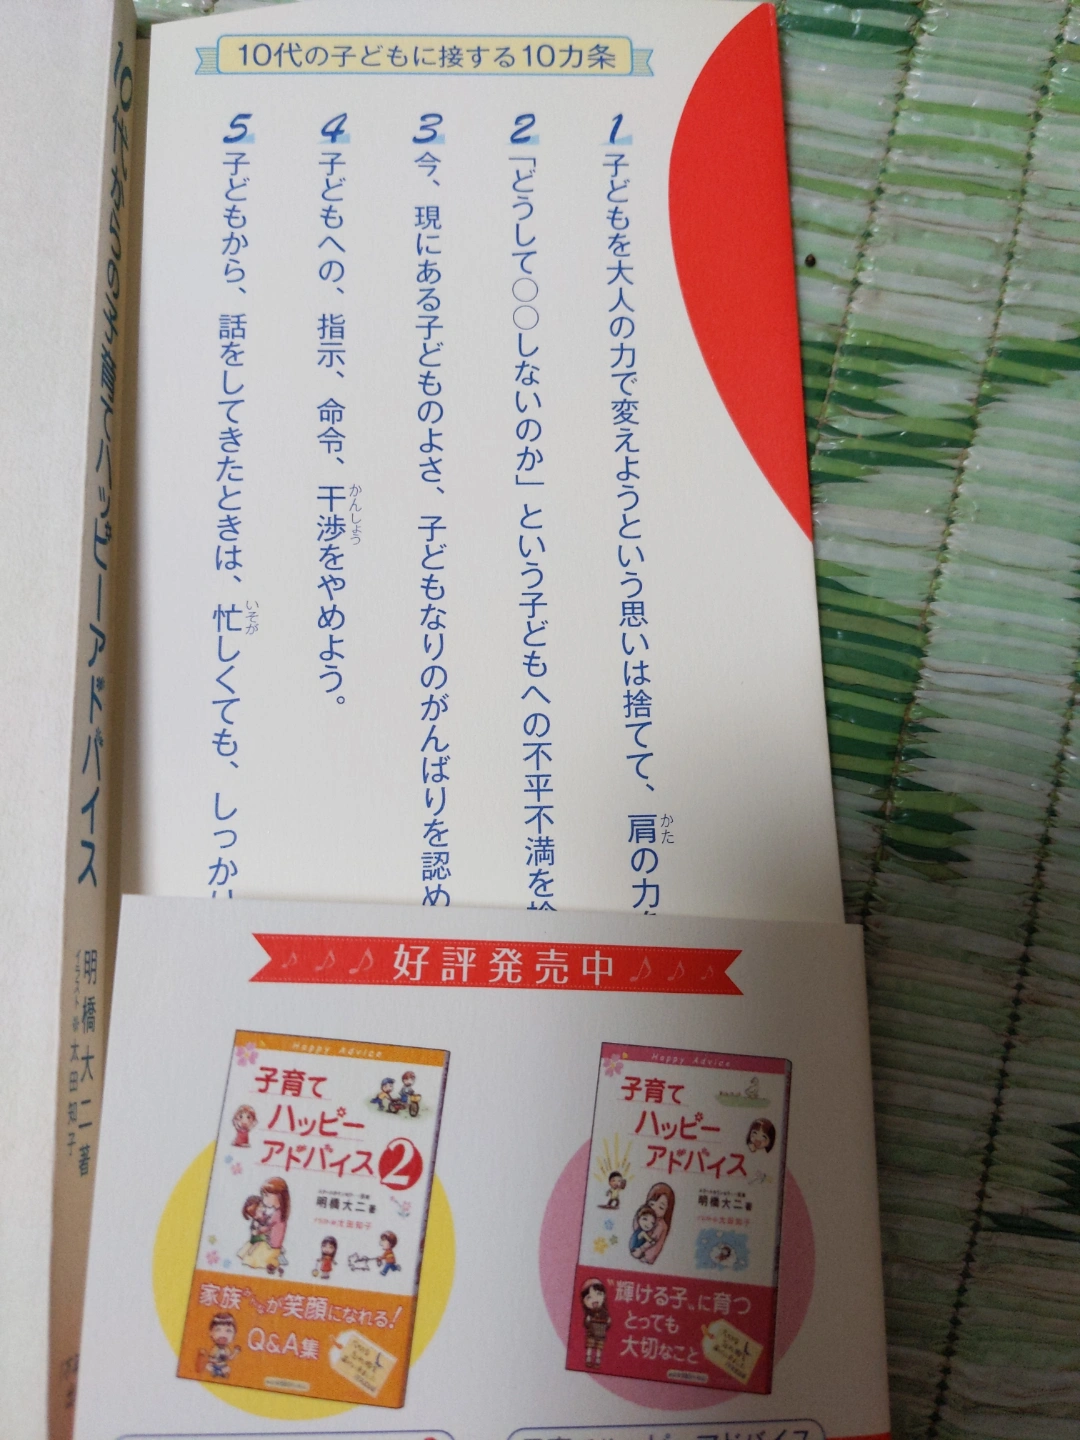 10代の子どもに接する10カ条
1 子どもを大人の力で変えようという思いは捨てて、肩の力
かた
2 「どうして〇〇しないのか」という子どもへの不平不満を
3 今、現にある子どものよさ、子どもなりのがんばりを認め
4 子どもへの、指示、命令、干渉をやめよう。
かんしょう
5 子どもから、話をしてきたときは、忙しくても、しっかり
いそが
10代からの子育てハッピーアドバイス
明橋大二 著
イラスト*太田知子
好評発売中
Happy Advice
子育て
ハッピー
アドバイス2
明橋大二著
イラスト*太田知子
家族みんなが笑顔になれる!
Q&A集
Happy Advice
子育て
ハッピー
アドバイス
明橋大二著
イラスト*太田知子
"輝ける子"に育つ
とっても
大切なこと
子育てハッピーアドバイス